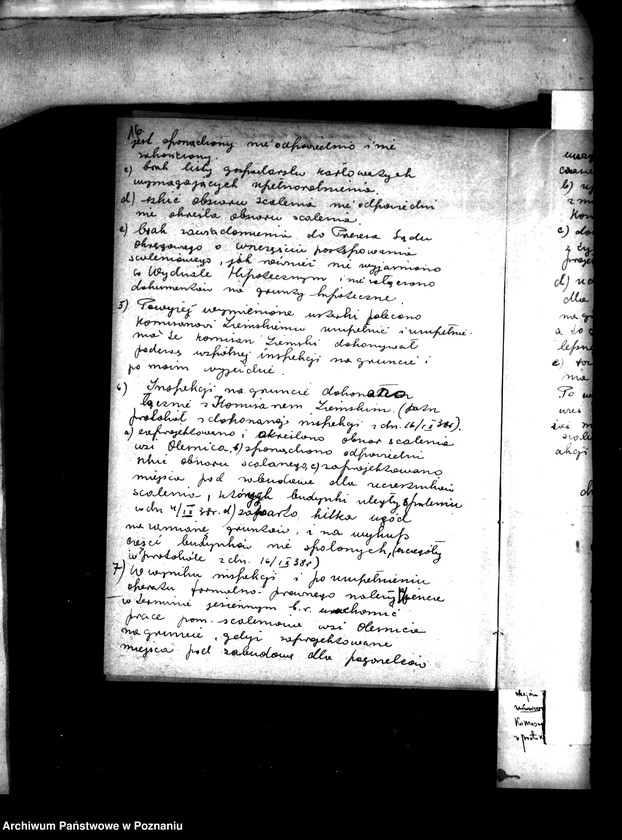 16.
jest sporządzony nieodpowiednio i nie
zakończony.
c) brak listy gospodarstw karłowatych
wymagających upełnorolnienia.
d) szkic obszaru scalenia nieodpowiedni
nie określa obszaru scalenia.
e) brak zawiadomienia do Prezesa Sądu
Okręgowego o wszczęciu postępowania
scaleniowego, jak również nie wyjaśniono
w Wydziale Hipotecznym i nie załączono
dokumentów na grunty hipoteczne.
5) Powyżej wymienione usterki polecono
Komisarzowi Ziemskiemu uzupełnić i uzupełnie-
nia te Komisarz Ziemski dokonywał
podczas wspólnej inspekcji na gruncie i
po moim wyjeździe.
6) Inspekcji na gruncie dokonano
łącznie z Komisarzem Ziemskim. (
protokół z dokonanej inspekcji z dn. 16/IX 38r).
a) zaprojektowano i określono obszar scalenia
wsi Oleśnica, b) sporządzono odpowiedni
szkic obszaru scalanego, c) zaprojektowano
miejsca pod zabudowę dla uczestników
scalenia, których budynki uległy spaleniu
w dn 4/IX 38r. d) zawarto kilka ugód
na zamianę gruntów, i na wykup
części budynków nie spalonych, (szczegóły
w protokóle z dn. 16/IX 38r)
7) W wyniku inspekcji i po uzupełnieniu
operatu formalno-prawnego należy
w terminie jesiennym b.r. uruchomić
prace pom. scaleniowe wsi Oleśnica
na gruncie, gdyż zaprojektowane
miejsca pod zabudowę dla pogorzelców
b)
c) do
d)
dla
e)
Po
Archiwum Państwowe w Poznaniu